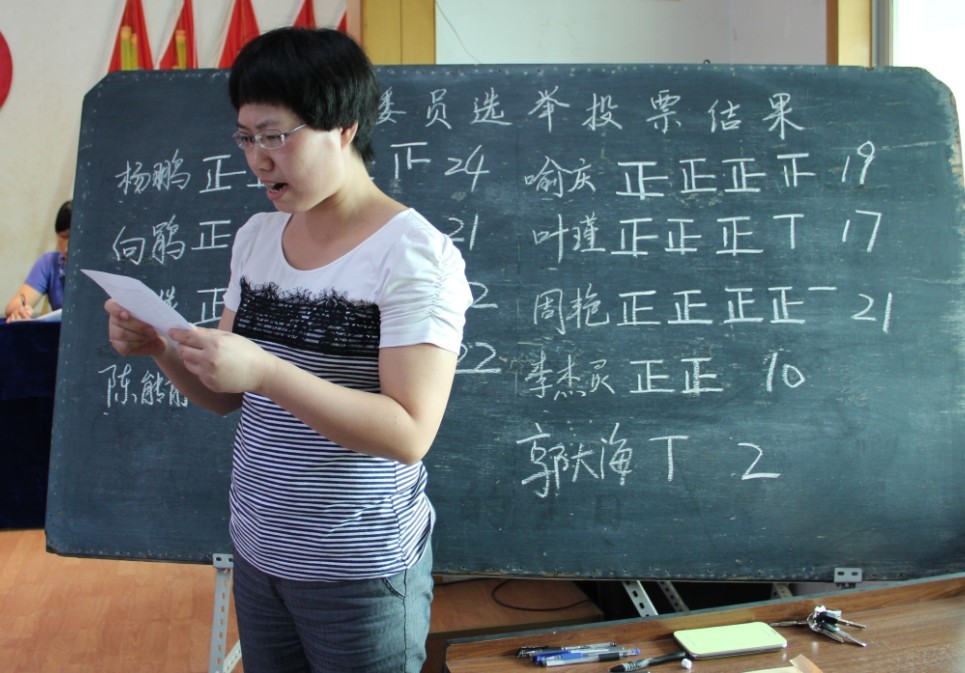 委员选举投票结果
杨鹏 正 24 喻庆 正正正𤴓 19
向鹃 正 21 叶瑾 正正正丅 17
正 2 周艳 正正正正一 21
陈能 22 李杰员 正正 10
郭大海 丅 2